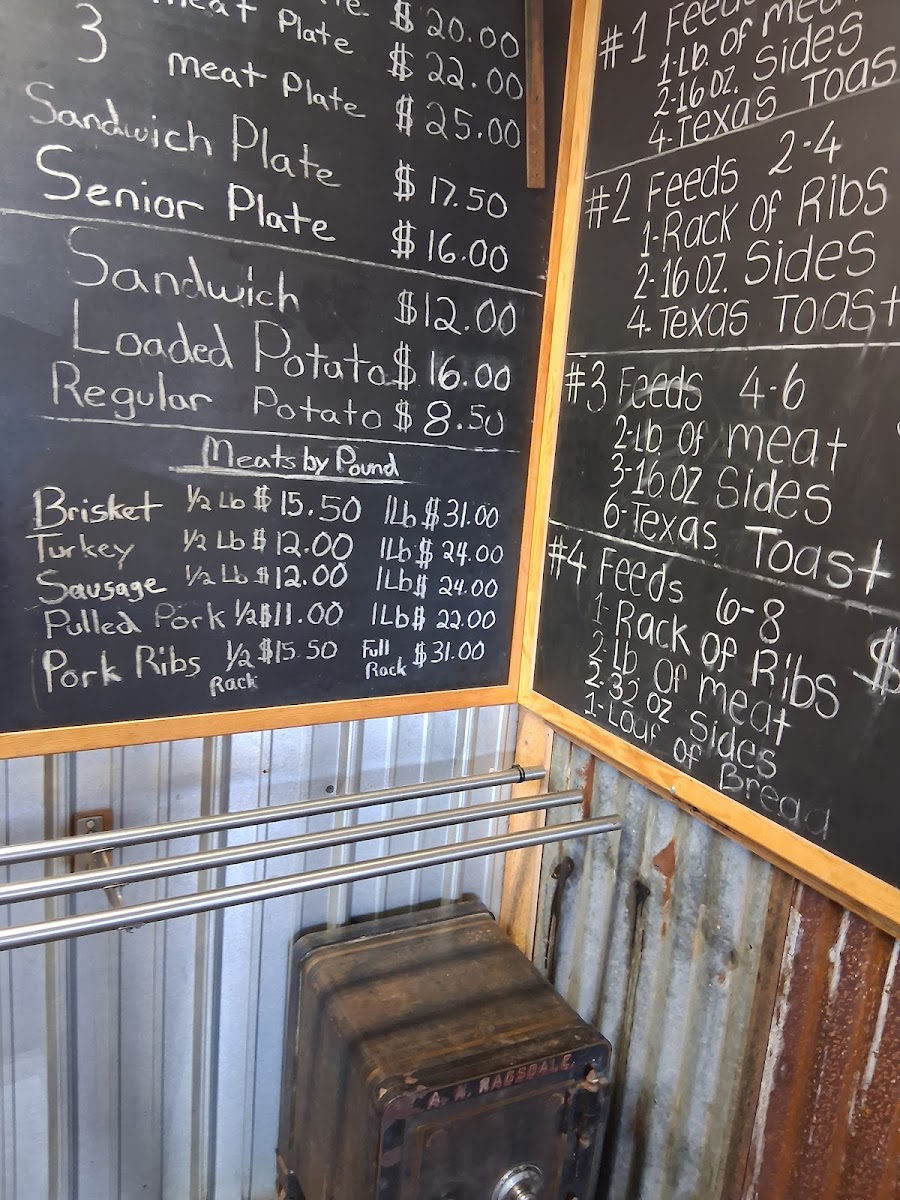 $ 20.00
meat Plate $ 22.00
3 meat Plate $ 25.00
Sandwich Plate $ 17.50
Senior Plate $ 16.00
Sandwich $12.00
Loaded Potato $ 16.00
Regular Potato $ 8.50
Meats by Pound
Brisket 1/2 Lb $ 15.50 1Lb $ 31.00
Turkey 1/2 Lb $ 12.00 1Lb $ 24.00
Sausage 1/2 Lb $ 12.00 1Lb $ 24.00
Pulled Pork 1/2 $11.00 1Lb $ 22.00
Pork Ribs 1/2 Rack $15.50 Full Rack $31.00
#1 Feeds
1-Lb. of meat
2-16 oz. Sides
4-Texas Toast
#2 Feeds 2-4
1-Rack of Ribs
2-16 OZ. Sides
4-Texas Toast
#3 Feeds 4-6
2-Lb of meat
3-16 OZ Sides
6-Texas Toast
#4 Feeds 6-8
1-Rack of Ribs $
2-Lb of meat
2-32 oz Sides
1-Loaf of Bread
A. H. RAGSDALE